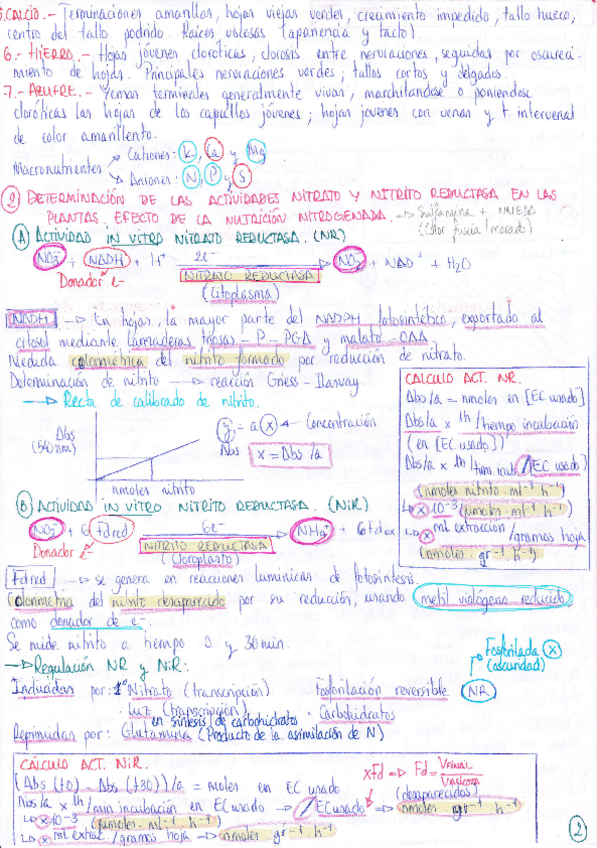 5. CALCIO.- Terminaciones amarillas, hojas viejas verdes, crecimiento impedido, tallo hueco,
centro del tallo podrido. Raíces viscosas (apariencia y tacto)
6.- HIERRO.- Hojas jóvenes cloróticas, clorosis entre nervaciones, seguidas por oscureci-
miento de hojas. Principales nervaciones verdes; tallos cortos y delgados.
7.- AZUFRE.- Yemas terminales generalmente vivas, marchitandose o poniendose
cloróticas las hojas de los capullos jóvenes; hojas jovenes con venas y t. intervenal
de color amarillento.
Macronutrientes
Cationes: K, Ca y Mg
Aniones: N, P y S
2 DETERMINACIÓN DE LAS ACTIVIDADES NITRATO Y NITRITO REDUCTASA EN LAS
PLANTAS. EFECTO DE LA NUTRICIÓN NITROGENADA. → Sulfanilna + NNEDA
(Color fuxia/morado)
A ACTIVIDAD IN VITRO NITRATO REDUCTASA. (NR)
NO3- + NADH + H+ 2e- → NO2- + NAD+ + H2O
Donador e-
NITRATO REDUCTASA
(Citoplasma)
NADH → En hojas, la mayor parte del NADPH fotosintético, exportado al
citosol mediante lanzaderas triosas - P - PGA y malato - OAA.
Medida colorimétrica del nitrito formado por reducción de nitrato.
Determinación de nitrito → reacción Griess - Ilosvay.
→ Recta de calibrado de nitrito.
Abs
(540nm)
nmoles nitrito
y = a x ← Concentración
Abs
x = Abs/a
CALCULO ACT. NR.
Abs/a = nmoles en [EC usado]
Abs/a x 1h/tiempo incubación
(en [EC usado])
Abs/a x 1h/tiem.incub/[EC usado)
(nmoles nitrito · ml-1 h-1)
↳ x 10-3 (μmoles · ml-1 h-1)
↳ x ml extracción/gramos hoja
(nmoles · gr-1 · h-1)
B ACTIVIDAD IN VITRO NITRITO REDUCTASA. (NiR)
NO2- + 6 Fdred 6e- → NH4+ + 6Fdox
Donador e-
NITRITO REDUCTASA
(Cloroplasto)
Fdred → se genera en reacciones luminicas de fotosíntesis.
Colorimetría del nitrito desaparecido por su reducción, usando metil viológeno reducido
como donador de e-.
Se mide nitrito a tiempo 0 y 30min.
→ Regulación NR y NiR:
Fosforilada x
(oscuridad)
Inducidas por: Nitrato (transcripción) Fosforilación reversible NR
· Luz (transcripción) · Carbohidratos
en síntesis de carbohidratos
Reprimidas por: Glutamina (Producto de la asimilación de N)
CÁLCULO ACT. NiR.
(Abs (t0) - Abs (t30))/a = moles en EC usado
xFd → Fd = Vfinal/Valícota
(desaparecidos)
Abs/a x 1h/min incubación en EC usado → /EC usado → nmoles gr-1 h-1
↳ x10-3 (μmoles · ml-1 h-1)
↳ x ml extrac./gramos hoja → nmoles · gr-1 · h-1
2